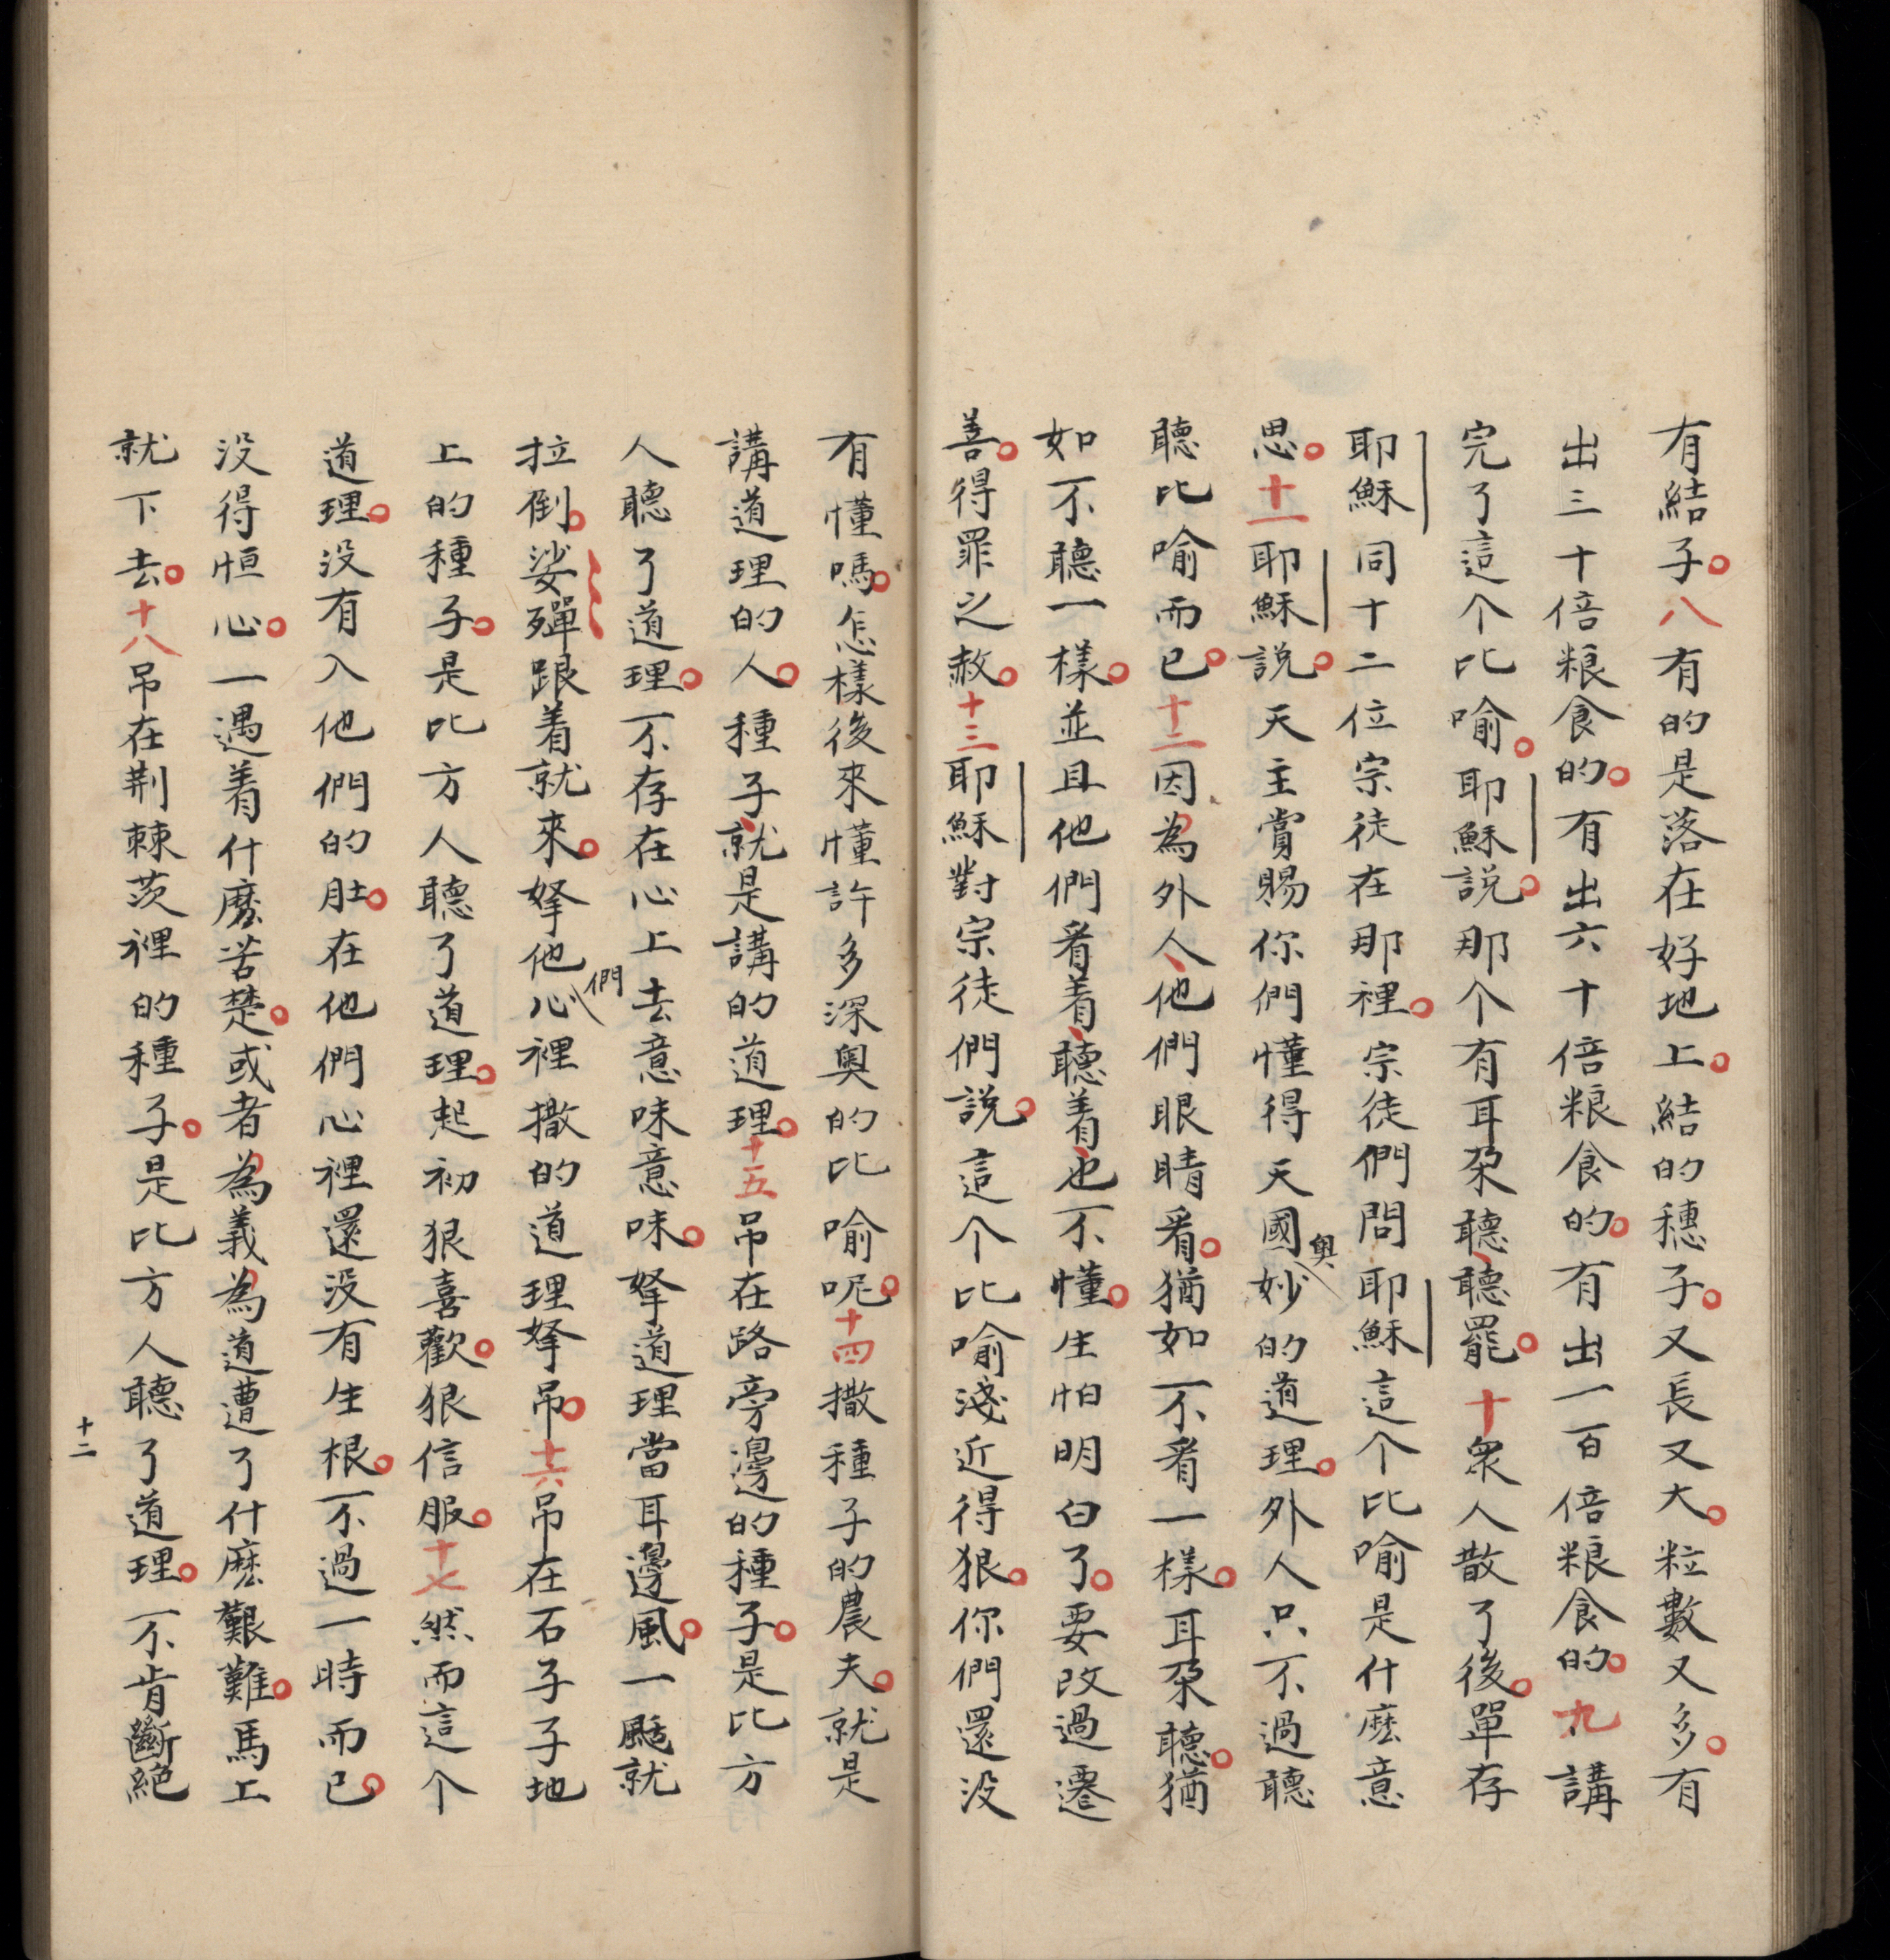 有結子。八有的是落在好地上。結的穗子。又長又大。粒數又多。有
出三十倍粮食的。有出六十倍粮食的。有出一百倍粮食的。九講
完了這个比喻。耶穌説。那个有耳朶聽、聽罷。十衆人散了後。單存
耶穌同十二位宗徒在那裡。宗徒們問耶穌這个比喻是什麽意
思。十一耶穌説。天主賞賜你們懂得天國奥妙的道理。外人只不過聽
聽比喻而已。十二因為外人、他們眼睛看。猶如不看一樣。耳朶聽。猶
如不聽一樣。並且他們看着、聽着、也不懂。生怕明白了。要改過遷
善。得罪之赦。十三耶穌對宗徒們説。這个比喻淺近得狠。你們還没
有懂嗎。怎樣後來懂許多深奥的比喻呢。十四撒種子的農夫。就是
講道理的人。種子、就是講的道理。十五吊在路旁邊的種子。是比方
人聽了道理。不存在心上去意味意味。拏道理當耳邊風。一颳就
拉倒。娑殫跟着就來。拏他們心裡撒的道理拏吊。十六吊在石子子地
上的種子。是比方人聽了道理。起初狠喜歡。狠信服。十七然而這个
道理。没有入他們的肚。在他們心裡還没有生根。不過一時而已。
没得恒心。一遇着什麽苦楚。或者為義為道遭了什麽艱難。馬上
就下去。十八吊在荆棘茨裡的種子。是比方人聽了道理。不肯斷絶
十二